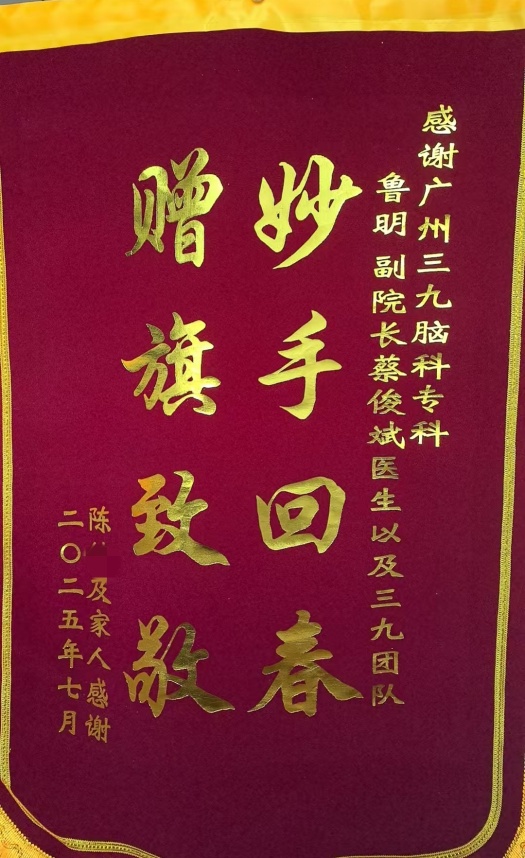 感谢广州三九脑科专科
鲁明副院长蔡俊斌医生以及三九团队
妙手回春
赠旗致敬
陈 及家人感谢
二〇二五年七月